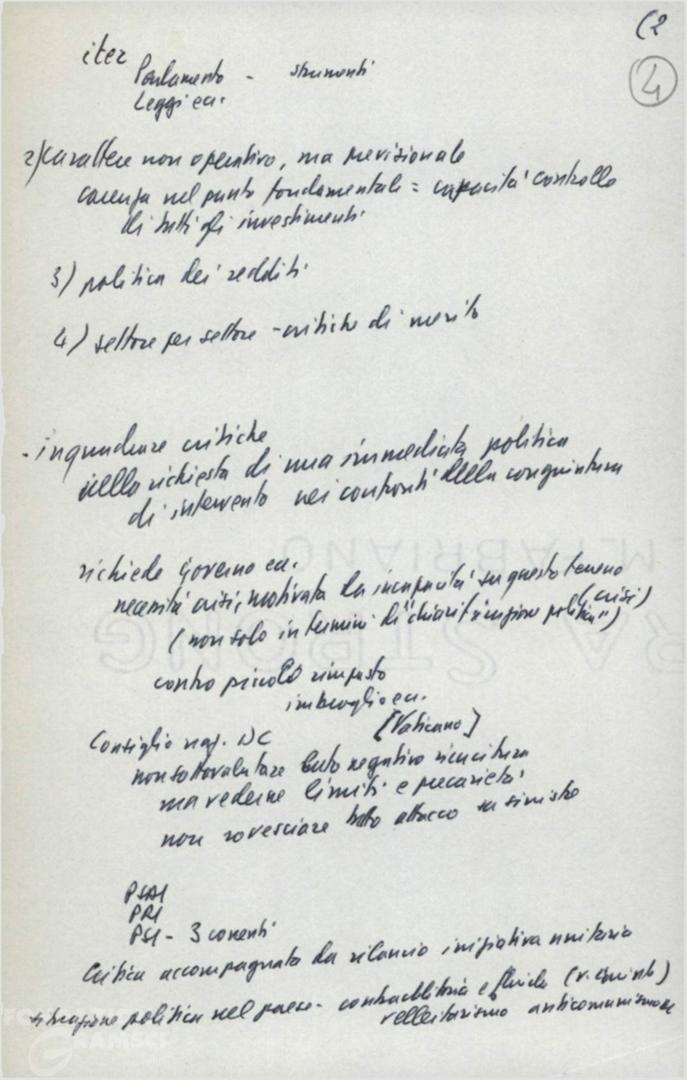 (2
4
iter
Parlamento - strumenti
Leggi ecc.
2) carattere non operativo, ma previsionale
carenza nel punto fondamentale = capacità controllo
di tutti gli investimenti
3) politica dei redditi
4) settore per settore - critiche di merito
- inquadrare critiche
nella richiesta di una immediata politica
di intervento nei confronti della congiuntura
richiede governo ecc.
necessità crisi, motivata da incapacità su questo terreno
(non solo in termini di "chiarificazione politica") (crisi)
contro piccolo rimpasto
imbroglio ecc.
[Vaticano]
Consiglio naz. DC
non sottovalutare dato negativo ricucitura
ma vederne limiti e precarietà
non rovesciare tutto attacco su sinistre
PSDI
PRI
PSI - 3 correnti
Critica accompagnata da rilancio iniziativa unitaria
situazione politica nel paese - contraddittoria e fluida
velleitarismo anticomunismo
FABRIANO
STRONG
GRAMSCI